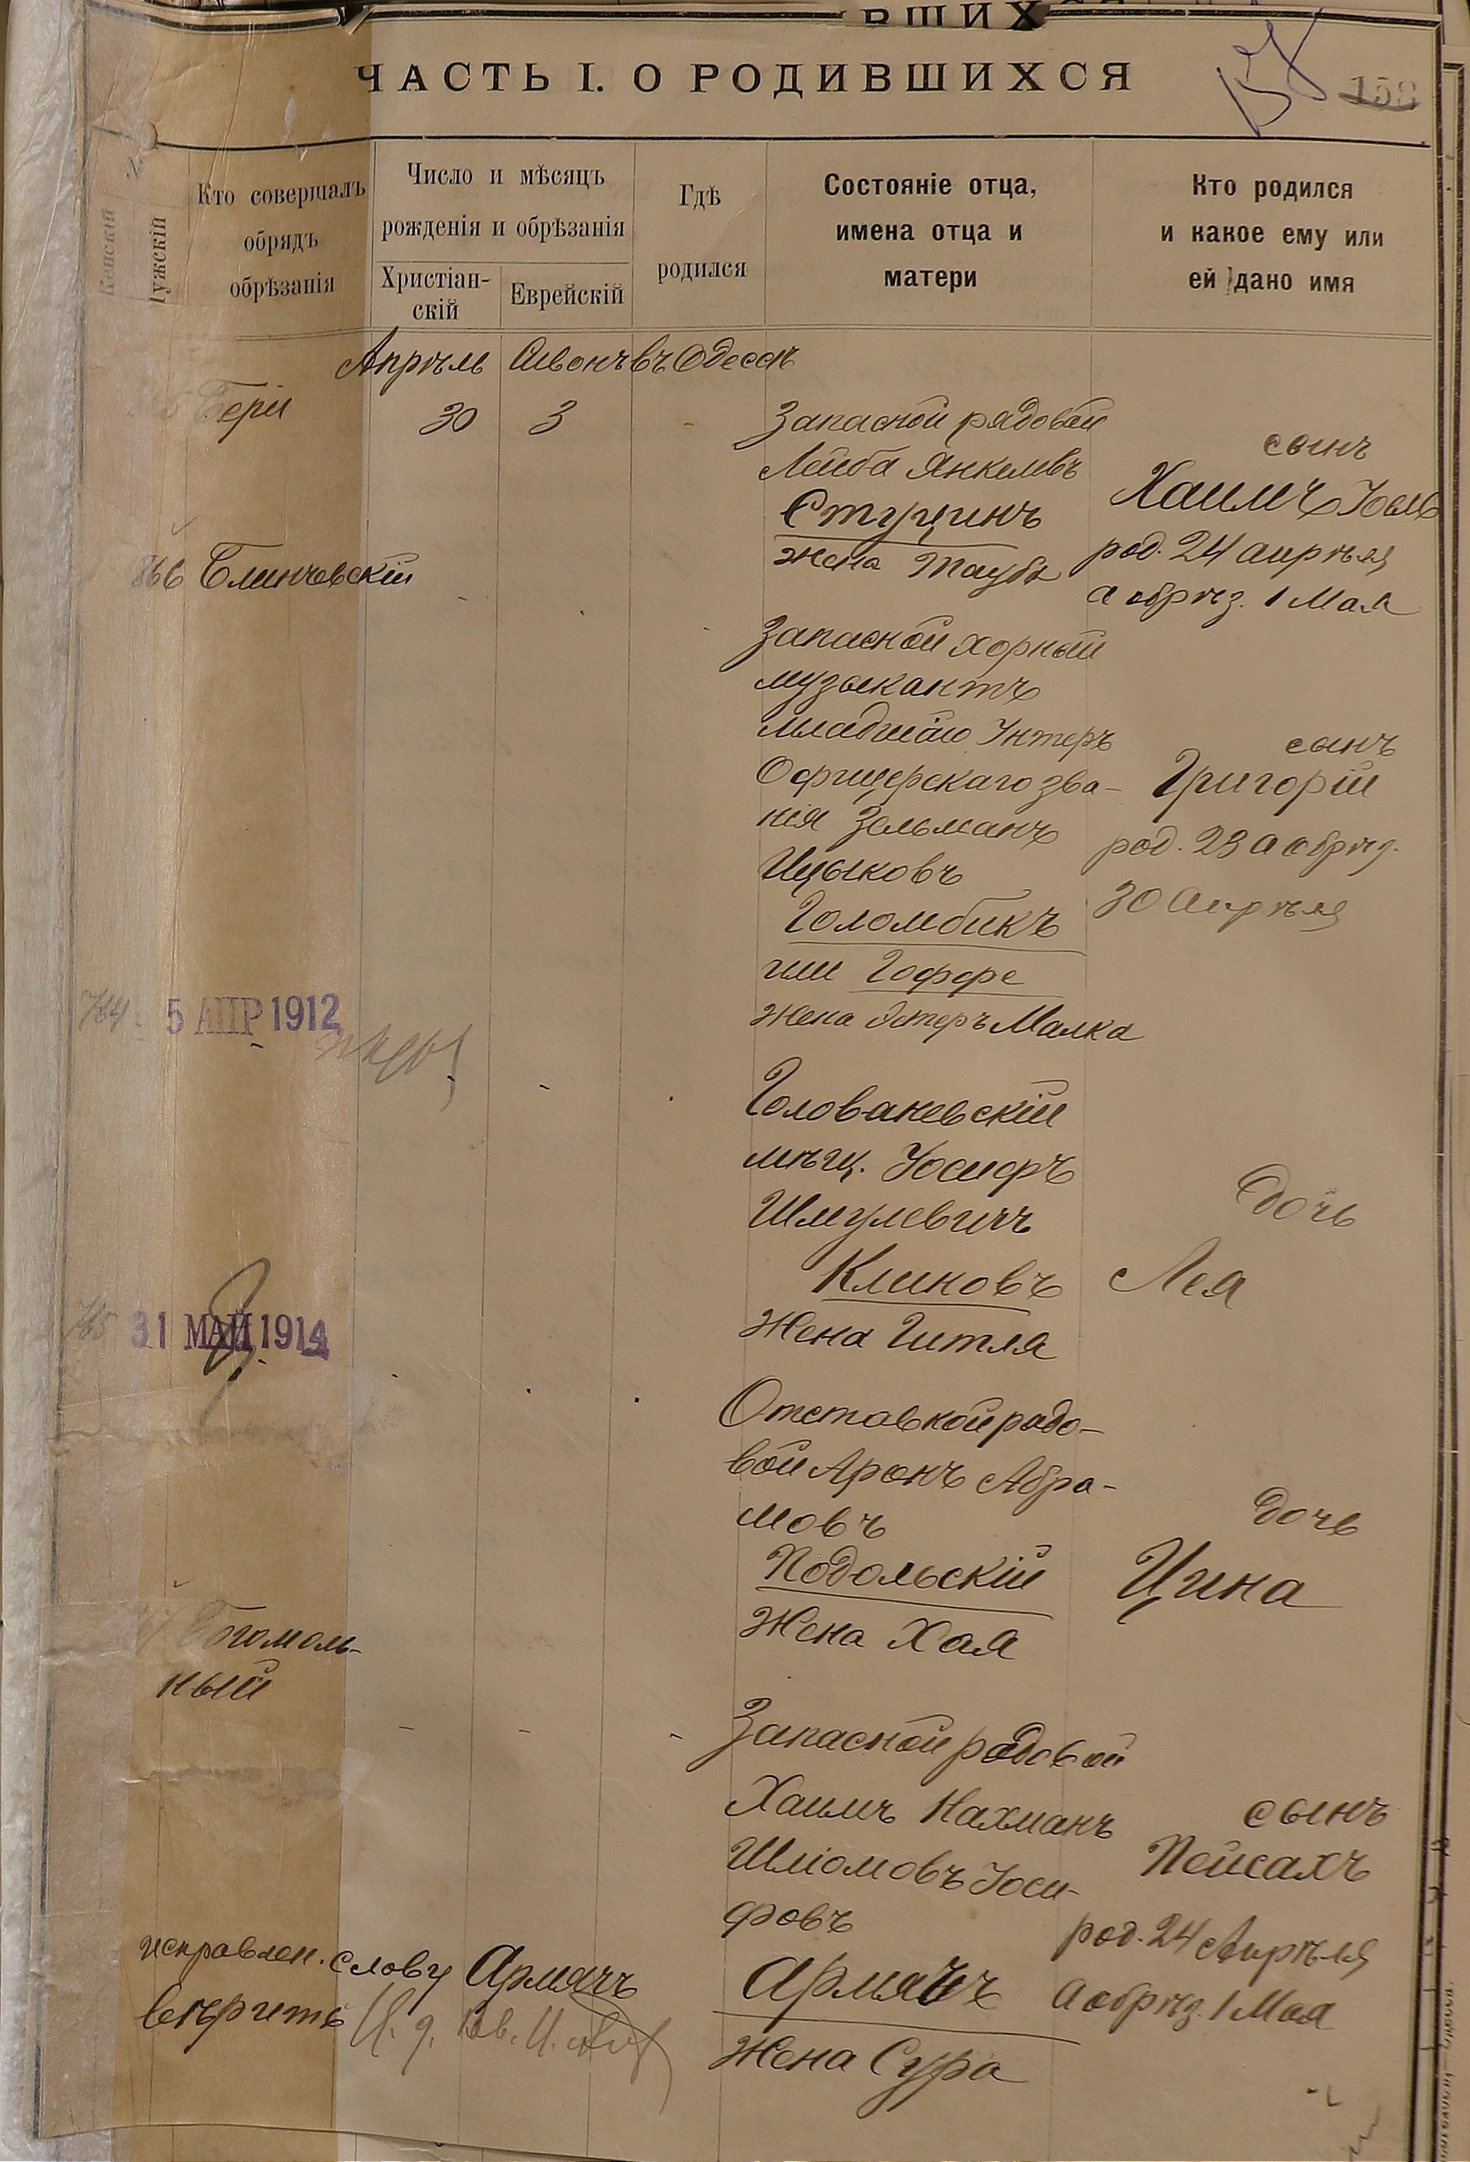 ВШИХ
ЧАСТЬ I. О РОДИВШИХСЯ
158
Женскій
Мужскій
Кто совершалъ
обрядъ
обрѣзанія
Число и мѣсяцъ
рожденія и обрѣзанія
Христіан-
скій
Еврейскій
Гдѣ
родился
Состояніе отца,
имена отца и
матери
Кто родился
и какое ему или
ей дано имя
Апрѣль
въ Одессѣ
30
3
Запасной рядовой
Лейба Янкелевъ
Стуцинъ
жена Тауба
сынъ
Хаимъ Іоель
род. 24 апрѣля
а обрѣз. 1 Мая
866
Блинчевскій
Запасной хорный
музыкантъ
младшаго Унтеръ
Офицерскаго зва-
нія Зельманъ
Ицыковъ
Голомбикъ
или Гофре
жена Эстеръ Малка
сынъ
Григорій
род. 23 а обрѣз.
30 Апрѣля
764
5 АПР 1912
Голованевскій
мѣщ. Іосифъ
Шмулевичъ
Клиновъ
жена Гитля
дочь
Лея
765
31 МАЙ 1914
Отставной рядо-
вой Аронъ Абра-
мовъ
Подольскій
жена Хая
дочь
Цина
Богомоль-
ный
Запасной рядовой
Хаимъ Нахманъ
Шліомовъ Іоси-
фовъ
Арманъ
жена Сура
сынъ
Пейсахъ
род. 24 Апрѣля
а обрѣз. 1 Мая
исправлен. слову
вѣрить